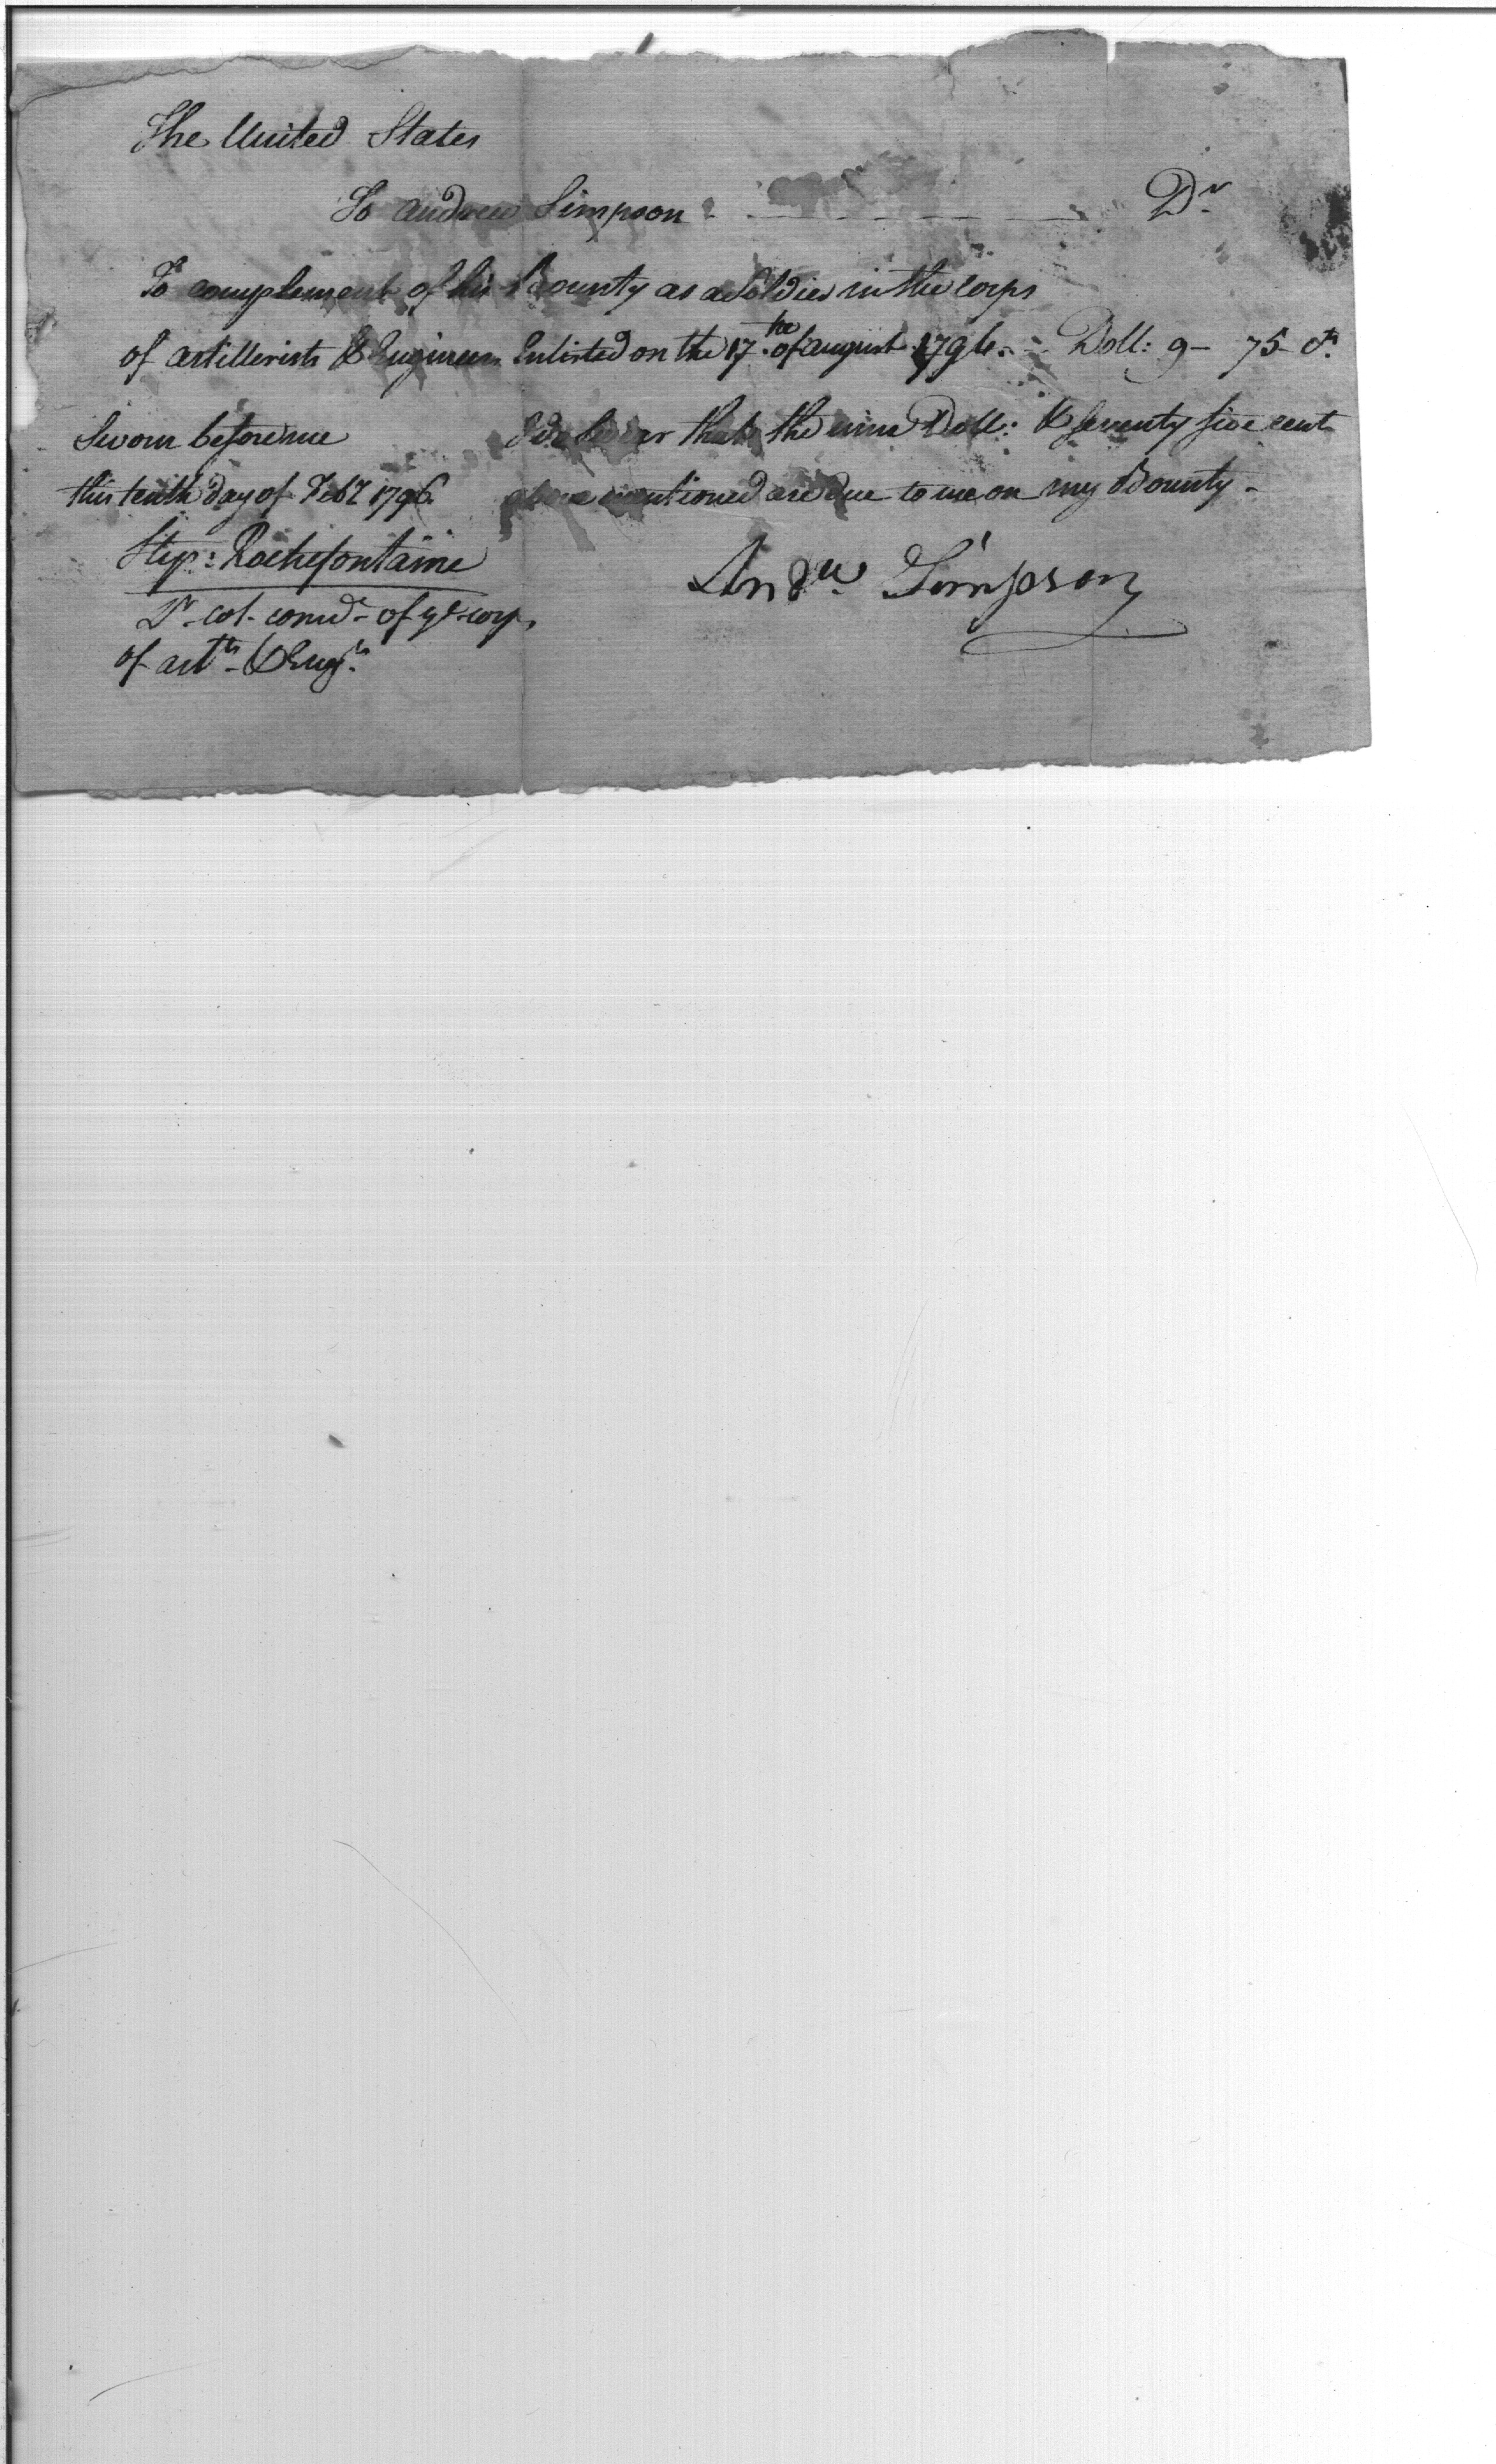 The United States
To andrew Simpson - Dr
To complement of his Bounty as a Soldier in the corps
of artillerists & Engineers Enlisted on the 17th of august 1794. Doll: 9 - 75 Cts
Sworn before me
this tenth day of Feby 1796
Step: Rochefontaine
Lt. col. comd. of ye corps
of artts & Engrs
I do Swear that the nine Doll: & Seventy five cent
above mentioned are due to me on my Bounty -
Andw Simpson